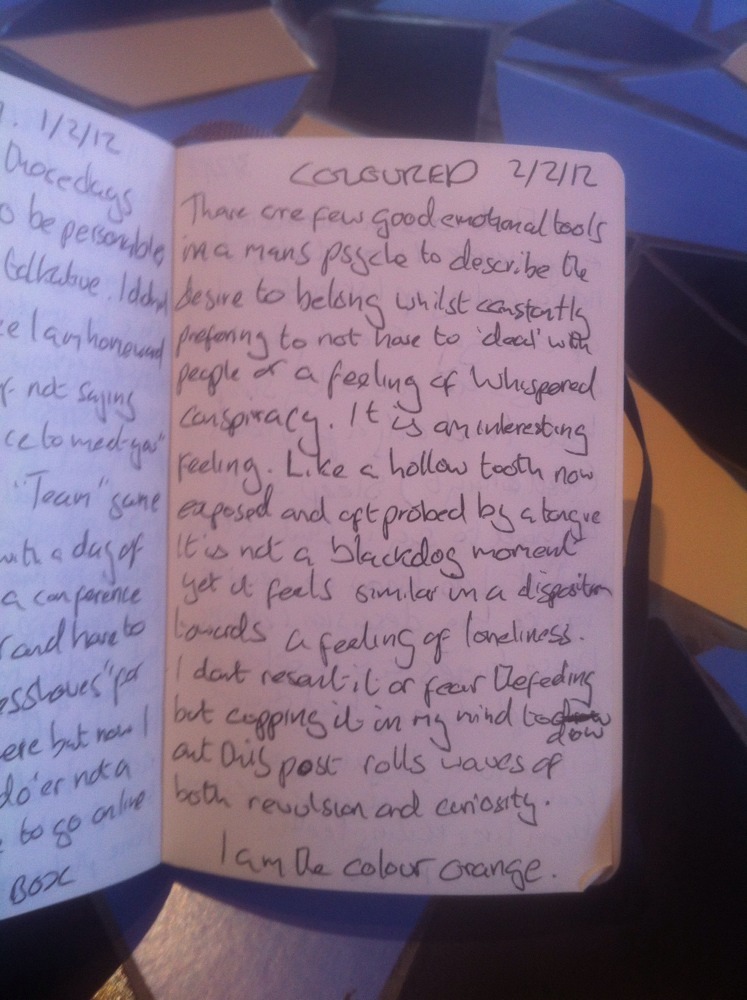 1/2/12
those days
to be personable,
talkative. I didn
I am honoured
not saying
ce to meet you"
"Team" game
with a day of
a conference
and have to
"for
ere but now I
do'er not a
to go online
BOX
COLOURED 2/2/12
There are few good emotional tools
in a mans psycle to describe the
desire to belong whilst constantly
preferring to not have to 'deal' with
people or a feeling of whispered
conspiracy. It is an interesting
feeling. Like a hollow tooth now
exposed and oft probed by a tongue
It is not a blackdog moment
yet it feels similar in a disposition
towards a feeling of loneliness.
I dont resent it or fear the feeding
but cupping it in my mind to
draw
out this post rolls waves of
both revulsion and curiosity.
I am the colour orange.